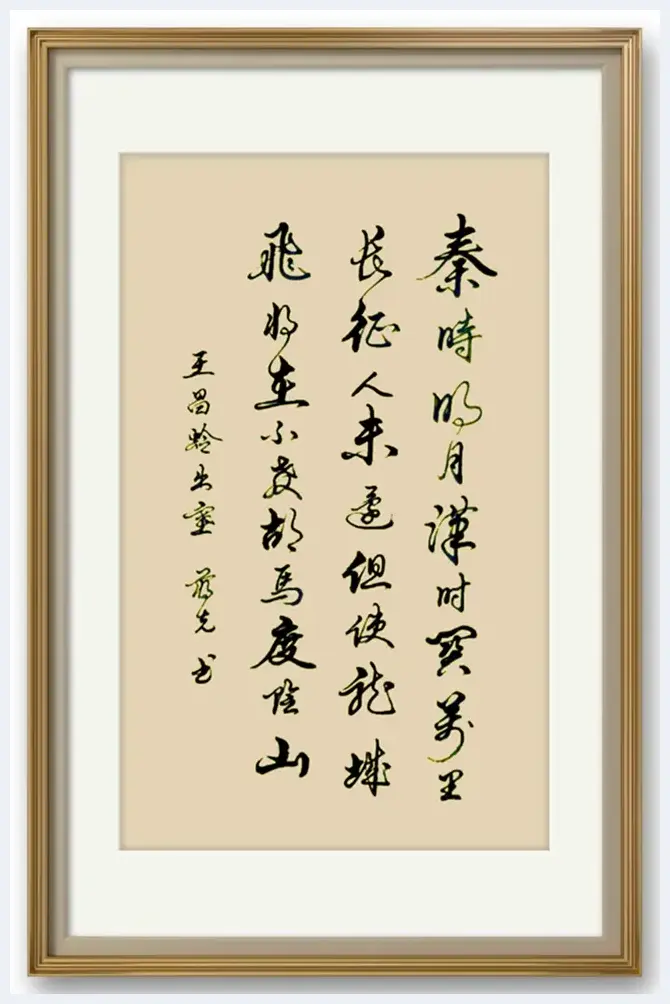 秦時明月漢时関萬里
長征人未還但使龍城
飛将在不教胡馬度陰山
王昌龄出塞 先书